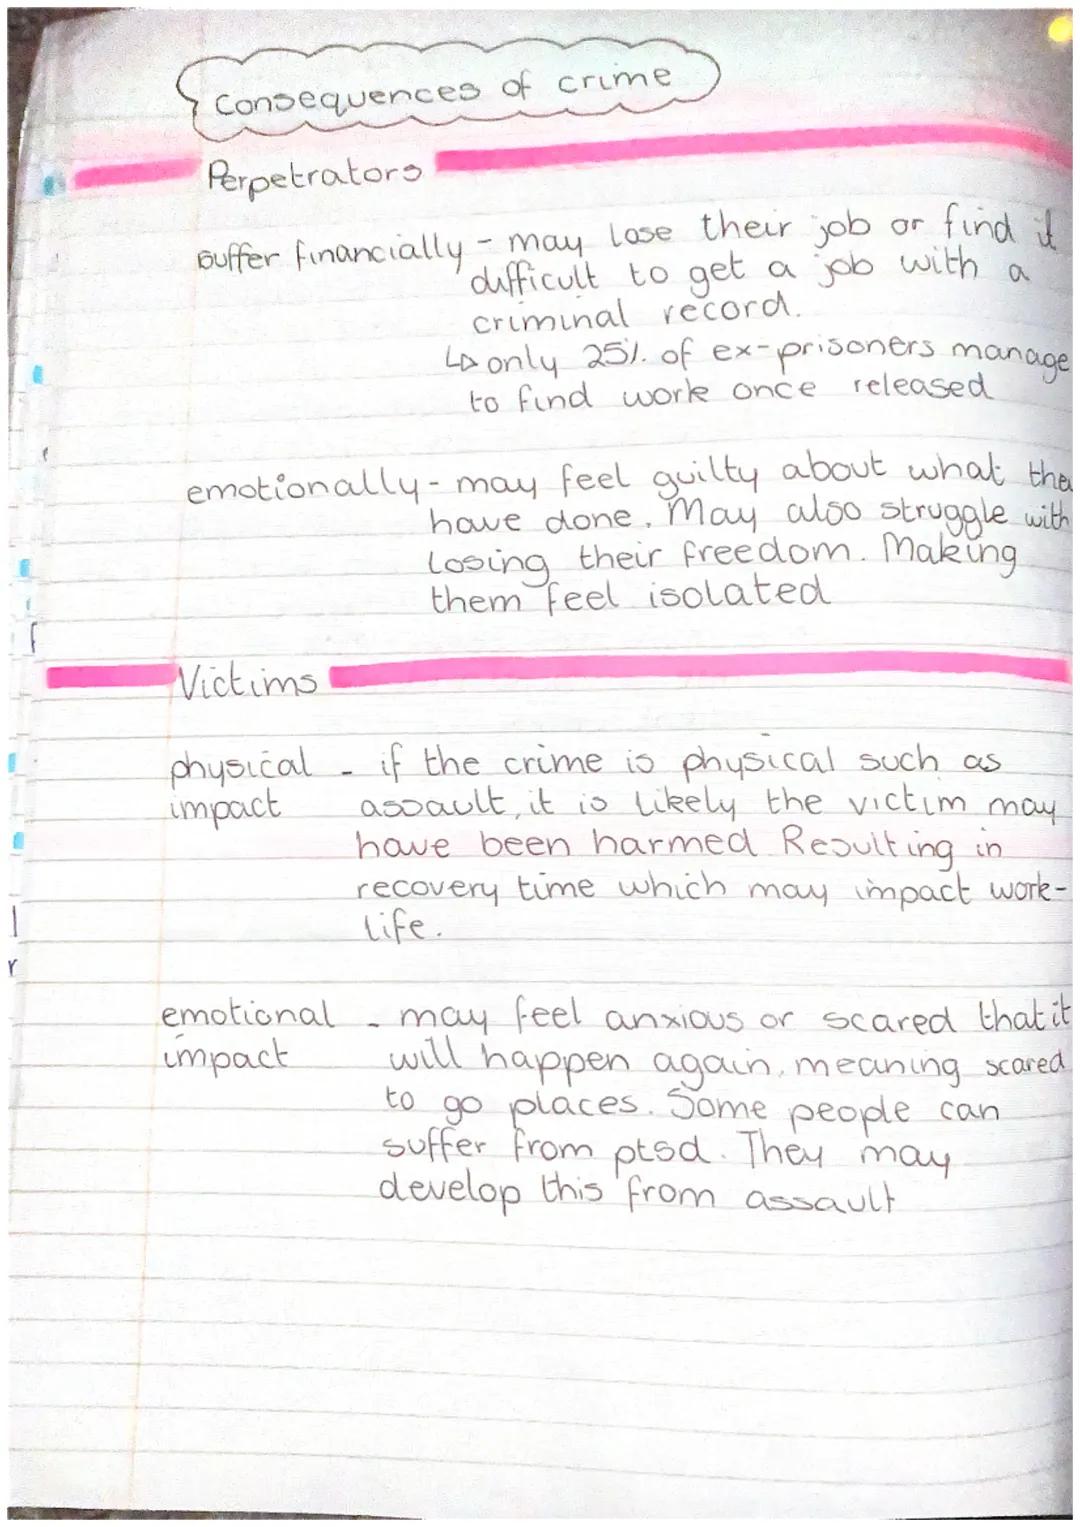 Consequences of crime
Perpetrators
suffer financially - may lose their job or find it
difficult to get a job with a
criminal record.
↳ only 25% of ex-prisoners manage
to find work once released
emotionally - may feel guilty about what the
have done. May also struggle with
losing their freedom. Making
them feel isolated
Victims
physical - if the crime is physical such as
impact assault, it is likely the victim may
have been harmed. Resulting in
recovery time which may impact work-
life.
emotional - may feel anxious or scared that it
impact will happen again, meaning scared
to go places. Some people can
suffer from ptsd. They may
develop this from assault